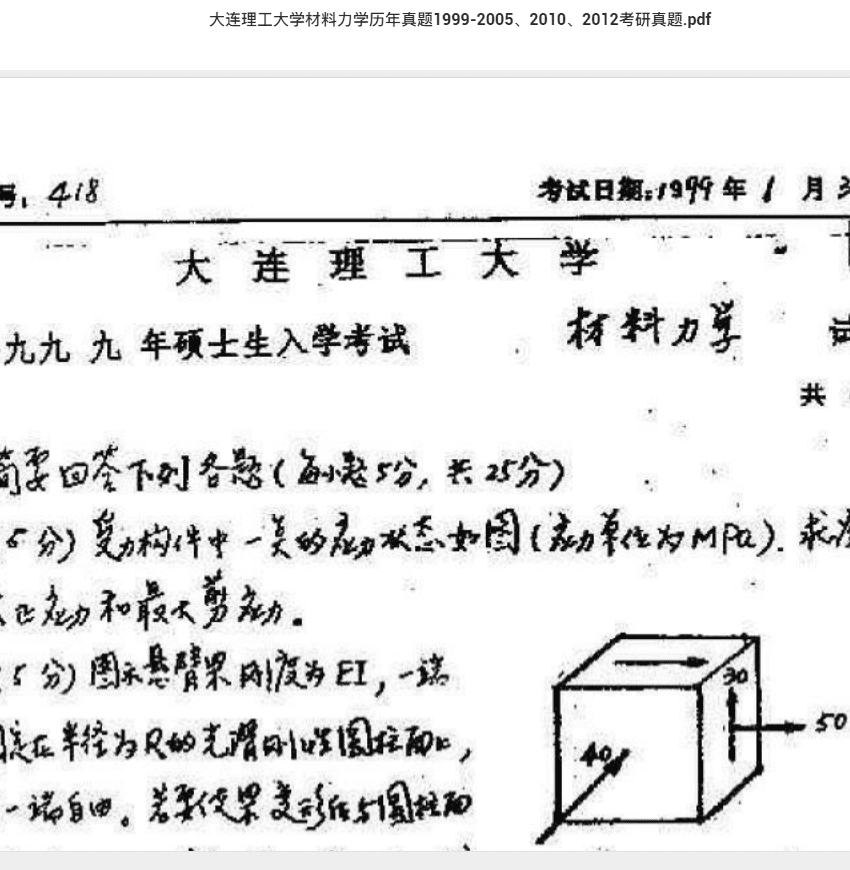 大连理工大学材料力学历年真题1999-2005、2010、2012考研真题.pdf
号: 418
考试日期:1999年1月3
大连理工大学
九九九年硕士生入学考试 材料力学 试
共
简要回答下列各题(每小题5分,共25分)
5分)受力构件中一点的应力状态如图(应力单位为MPa).求
正应力和最大剪应力。
30
(5分)图示悬臂梁刚度为EI,一端
50
固定在半径为R的光滑刚性圆柱面上,
40
一端自由。若要使梁变形后与圆柱面